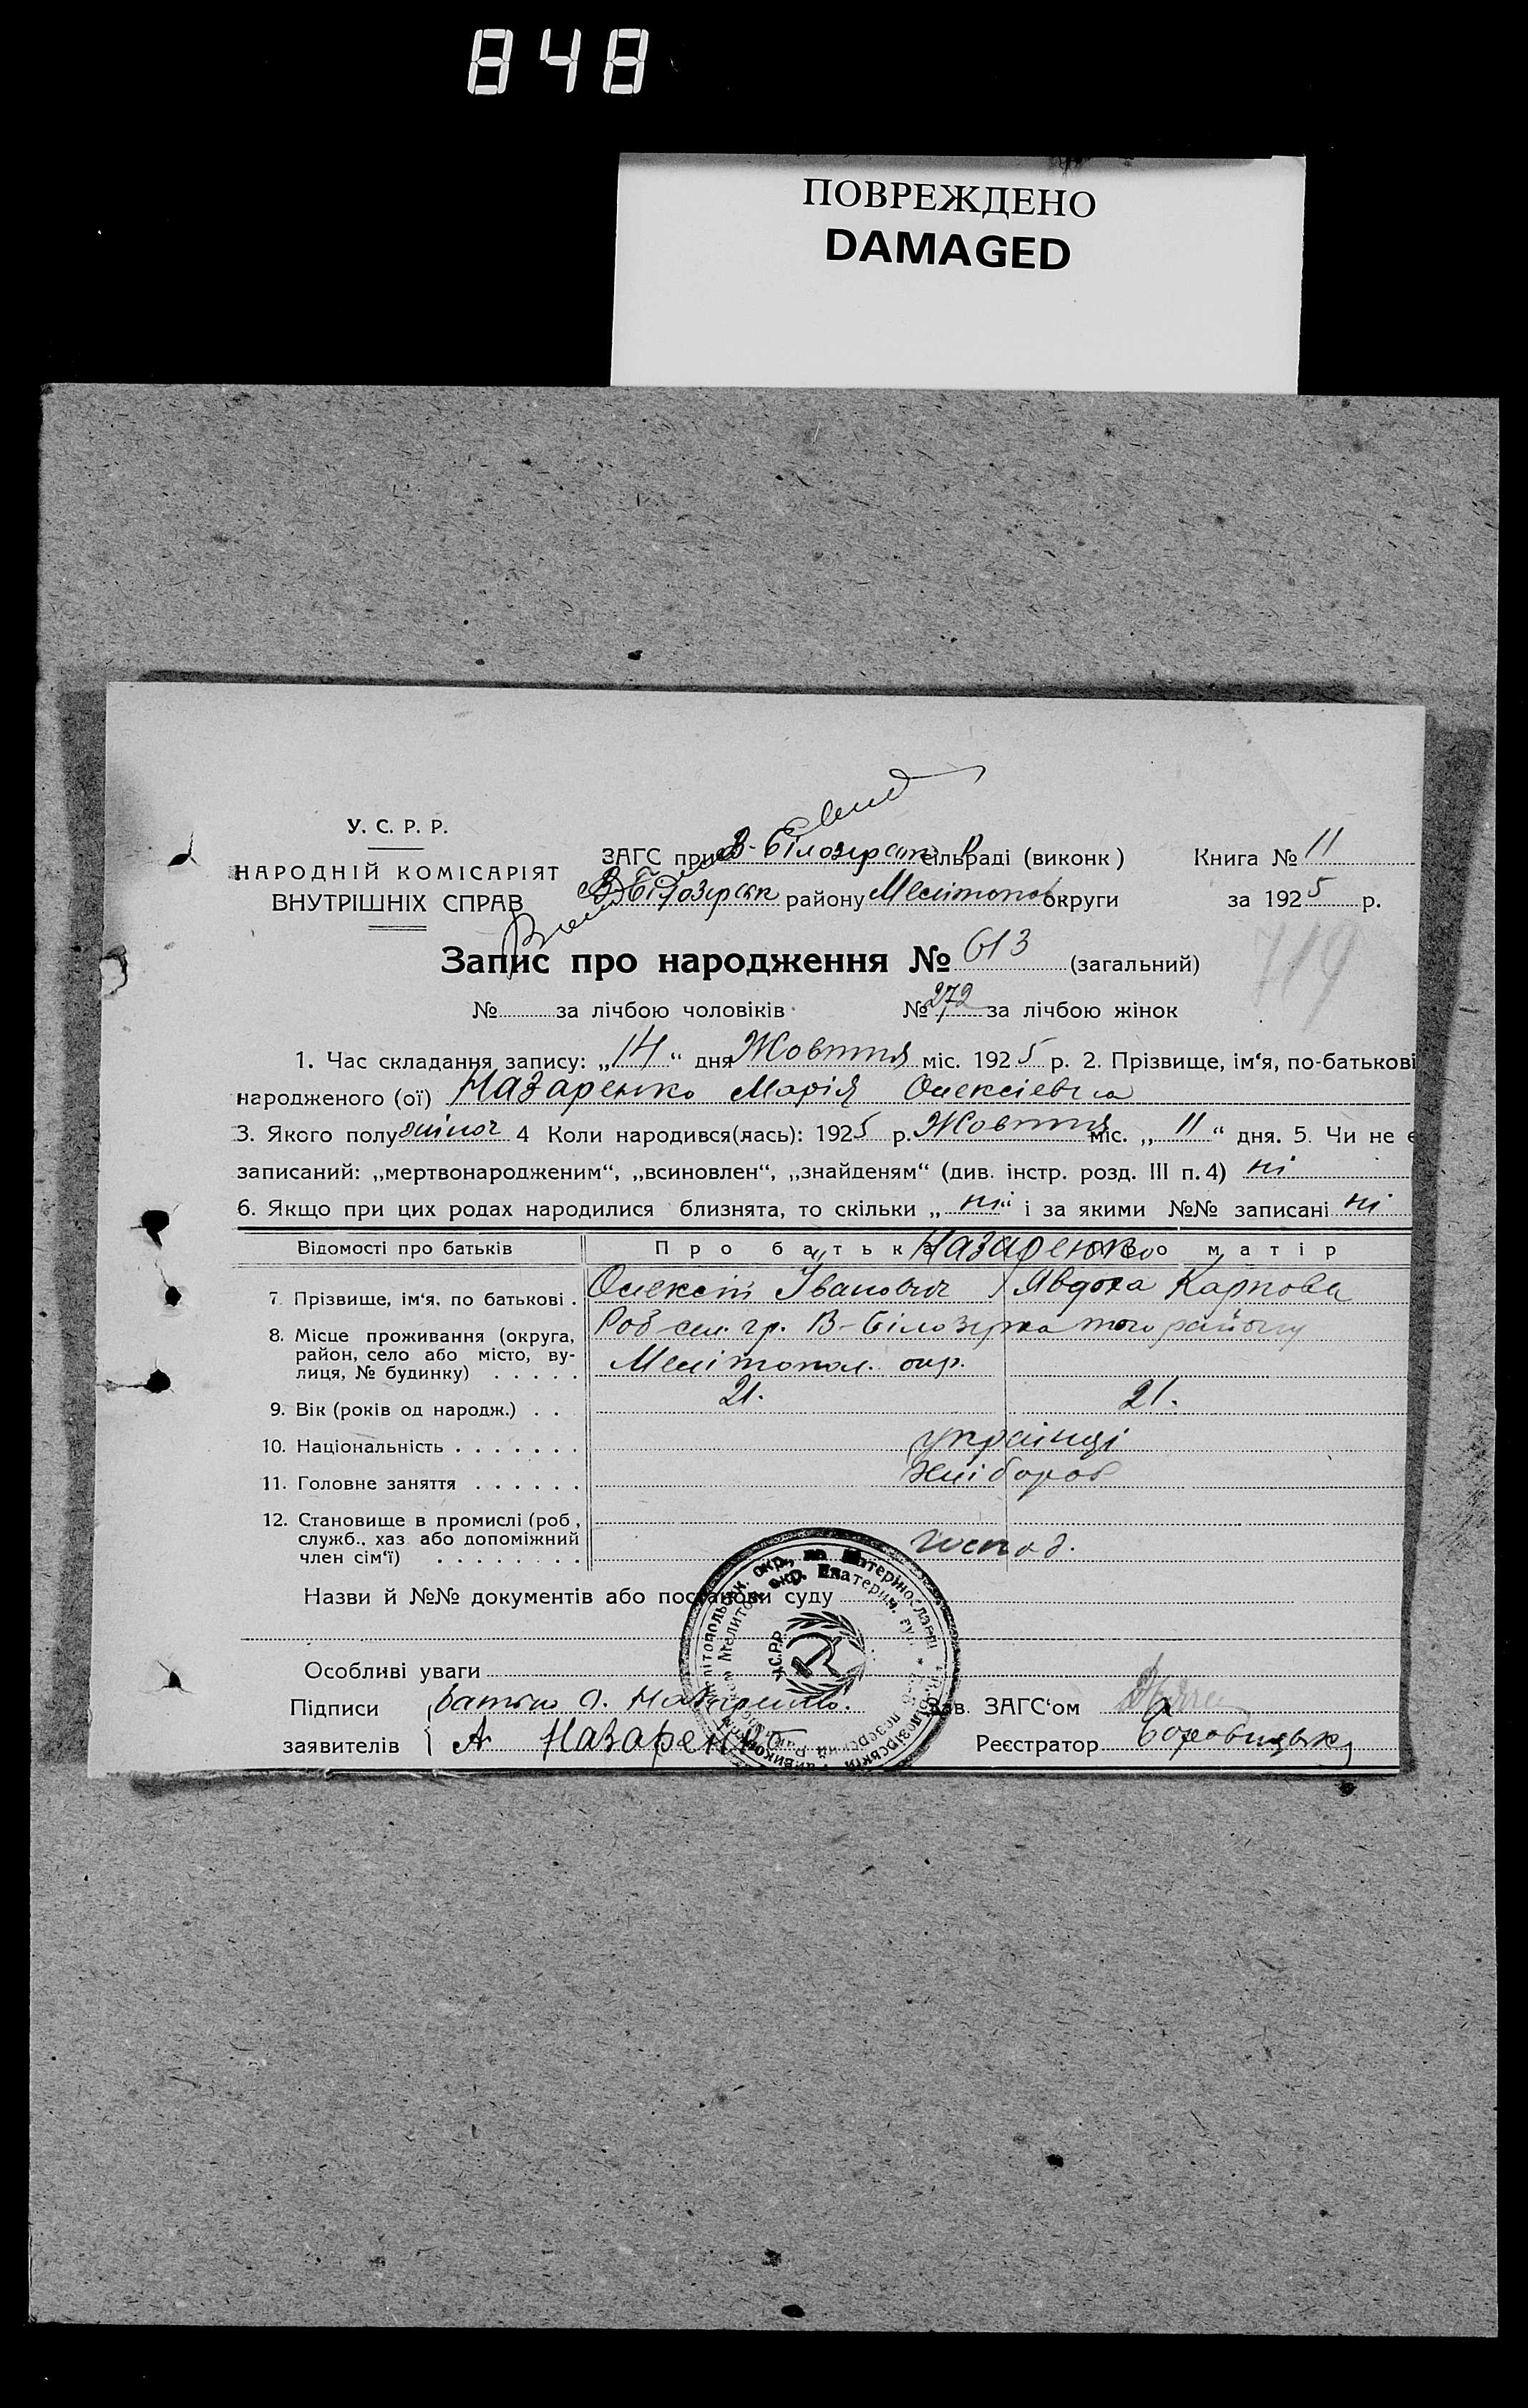 848
ПОВРЕЖДЕНО
DAMAGED
У. С. Р. Р.
НАРОДНІЙ КОМІСАРІЯТ
ВНУТРІШНІХ СПРАВ
ЗАГС при В-Білозерськ сільраді (виконк) Книга № 11
В Білозерськ району Мелітопов округи за 1925 р.
Запис про народження № 613 (загальний)
719
№ за лічбою чоловіків № 272 за лічбою жінок
1. Час складання запису: „14“ дня Жовтня міс. 1925 р. 2. Прізвище, ім‘я, по-батькові
народженого (ої) Назаренко Марія Олексіевна
3. Якого полу жіноч 4 Коли народився(лась): 1925 р. Жовтня міс. „11“ дня. 5. Чи не є
записаний: „мертвонародженим“, „всиновлен“, „знайденям“ (див. інстр. розд. III п. 4) ні
6. Якщо при цих родах народилися близнята, то скільки „ні“ і за якими №№ записані ні
Відомості про батьків Про батька Назаренко Про матір
7. Прізвище, ім‘я, по батькові . Олексій Іванович Явдоха Карпова
8. Місце проживання (округа, район, село або місто, вулиця, № будинку) . . . . .
Роб-сел. гр. В-Білозерка того району
Мелітопол. окр.
9. Вік (років од народж.) . . 21. 21.
10. Національність . . . . . . . українці
11. Головне заняття . . . . . . хлібороб
12. Становище в промислі (роб., служб., хаз. або допоміжний член сім‘ї) . . . . . . . . господ.
Назви й №№ документів або постанови суду
Особливі уваги
У.С.Р.Р.
Підписи Батько О. Назаренко. Зав. ЗАГС‘ом
заявителів А Назаренко Реєстратор